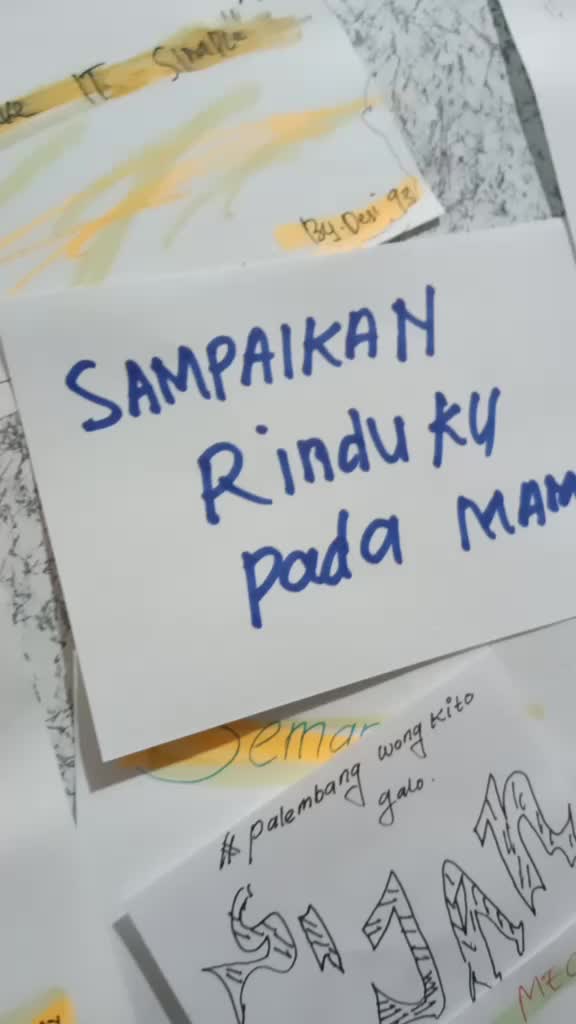 IT Simple"
By. Desi 93
SAMPAIKAN
Rinduku
pada MAM
Semar
# palembang wong kito
galo.